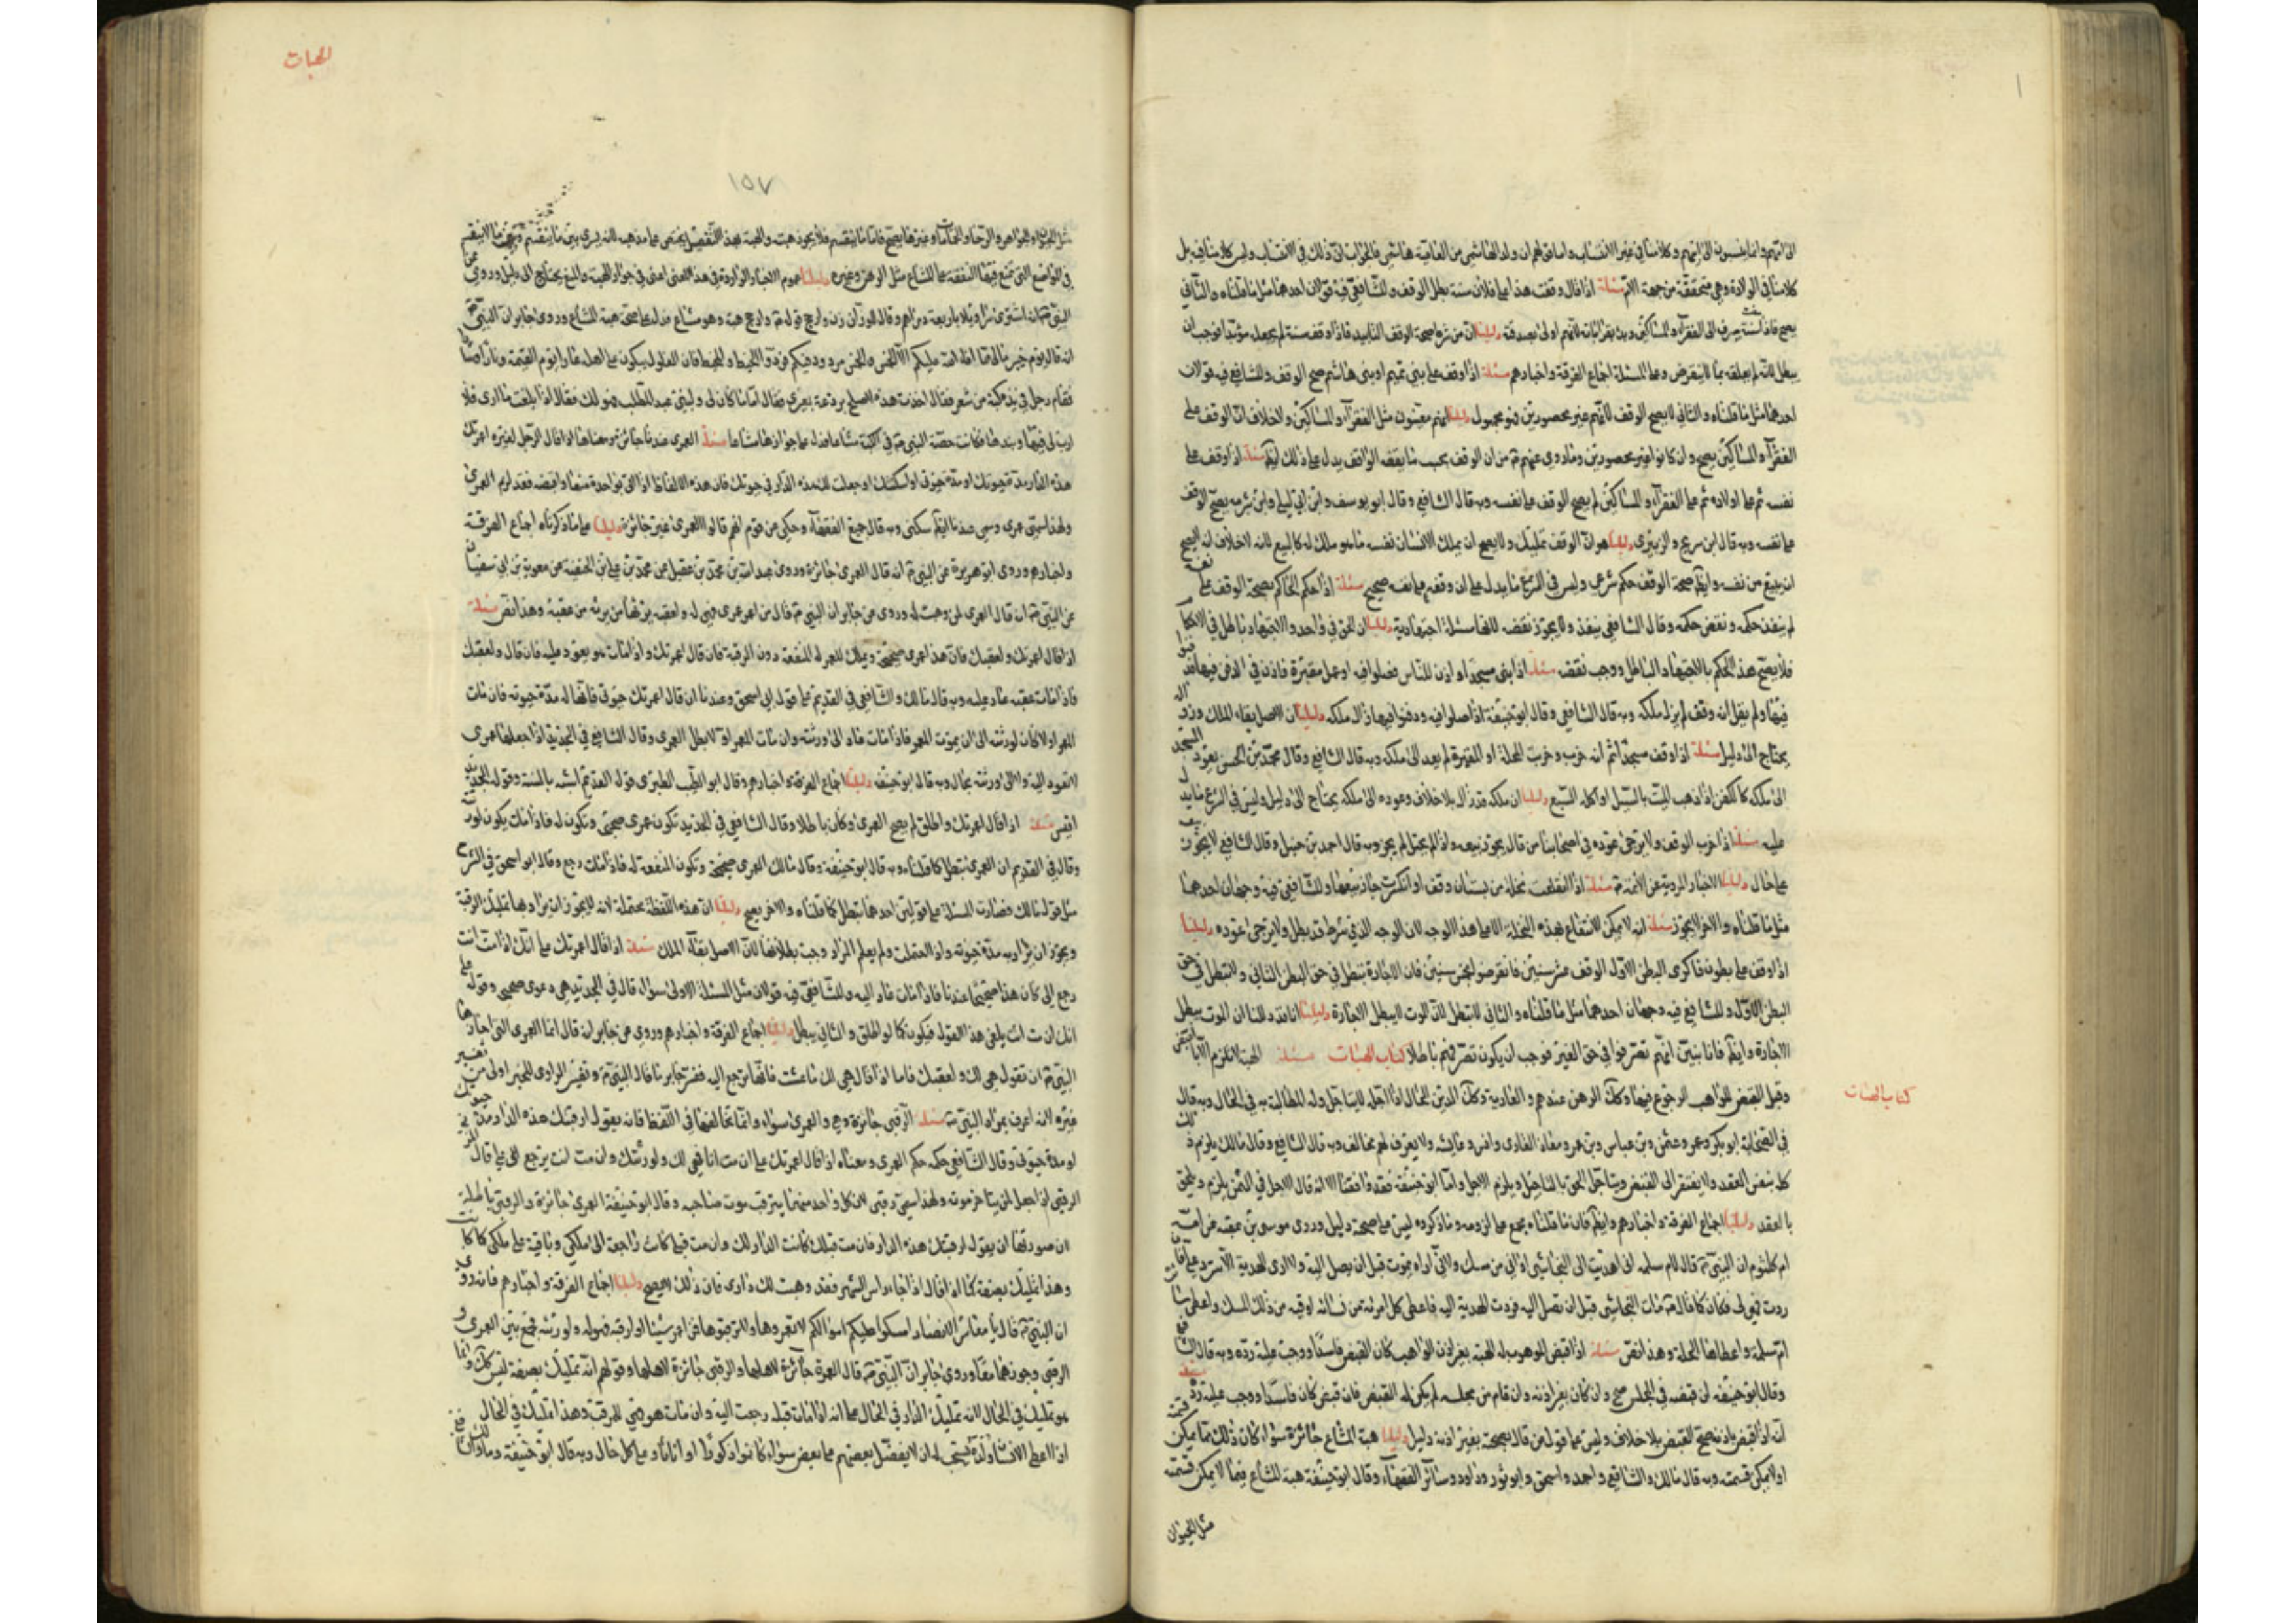 الى اتهم وانما ينسبون الى ابائهم وكلامنا في غير الانتساب واما قولهم ان ولد الهاشمي من العامية هاشمي فالجواب ان ذلك في الانتساب وليس كلامنا فيه بل
كلامنا في الولادة وهي متحققة من جهة الام مسئلة اذا قال وقفت هذا على فلان سنة بطل الوقف وللشافعي فيه قولان احدهما مثل ما قلناه والثاني
يصح فاذا سنة يصرف الى الفقراء والمساكين ويبدء بقراباته لانهم اولى بصدقته دليلنا ان من شرط صحة الوقف التابيد فاذا وقفه سنة لم يجعله مؤبدا فوجب ان
يبطل لانه لم يعلقه بما لا ينقرض وعلى المسئلة اجماع الفرقة واخبارهم مسئلة اذا وقف على بني تميم او بني هاشم صح الوقف وللشافعي فيه قولان
احدهما مثل ما قلناه والثاني لا يصح الوقف لانهم غير محصورين فهو مجهول دليلنا انهم معينون مثل الفقراء والمساكين ولا خلاف ان الوقف على
الفقراء والمساكين يصح وان كانوا غير محصورين وما روى عنهم ع من ان الوقف بحسب ما يقفه الواقف يدل على ذلك ايضا مسئلة اذا وقف على
نفسه ثم على اولاده ثم على الفقراء والمساكين لم يصح الوقف على نفسه وبه قال الشافعي وقال ابو يوسف وابن ابي ليلى وابن شبرمة يصح الوقف
على نفسه وبه قال ابن سريج والزبيري دليلنا هو ان الوقف تمليك ولا يصح ان يملك الانسان نفسه ما هو ملك له كالبيع لانه لا خلاف انه لا يصح
ان يبيع من نفسه وايضا صحة الوقف حكم شرعي وليس في الشرع ما يدل على ان وقفه على نفسه صحيح مسئلة اذا حكم الحاكم بصحة الوقف على نفسه
لم ينفذ حكمه ونقض حكمه وقال الشافعي ينفذ ولا يجوز نقضه لانها مسئلة اجتهادية دليلنا ان الحق في واحد والاجتهاد باطل في الاحكام
فلا يصح هذا الحكم بالاجتهاد الباطل ووجب نقضه مسئلة اذا بنى مسجدا واذن للناس فصلوا فيه او عمل مقبرة فاذن في الدفن فيها فدفنوا
فيها ولم يقل انه وقف لم يزل ملكه وبه قال الشافعي وقال ابو حنيفة اذا صلوا فيه ودفنوا فيها زال ملكه دليلنا ان الاصل بقاء الملك وزواله
يحتاج الى دليل مسئلة اذا وقف مسجدا ثم انه خرب وخربت المحلة او القرية لم يعد الى ملكه وبه قال الشافعي وقال محمد بن الحسن يعود المسجد
الى ملكه كالكفن اذا ذهب الميت بالسيل او اكله السبع دليلنا ان ملكه قد زال بلا خلاف وعوده الى ملكه يحتاج الى دليل وليس في الشرع ما يدل
عليه مسئلة اذا خرب الوقف ولا يرجى عوده في اصحابنا من قال يجوز بيعه واذا لم يختل لم يجز وبه قال احمد بن حنبل وقال الشافعي لا يجوز بيعه
على حال دليلنا الاخبار المروية عن الائمة ع مسئلة اذا انقلعت نخلة من بستان وقف او انكسرت جاز بيعها وللشافعي فيه وجهان احدهما
مثل ما قلناه والاخر لا يجوز مسئلة انه لا يمكن الانتفاع بهذه النخلة الا على هذا الوجه لان الوجه الذي شرطه قد بطل ولا يرجى عوده دليلنا
اذا وقف على بطون فاكرى البطن الاول الوقف عشر سنين فانقرضوا لخمس سنين فان الاجارة تبطل في حق البطن الثاني ولا تبطل في حق
البطن الاول وللشافعي فيه وجهان احدهما مثل ما قلناه والثاني لا تبطل لان الموت لا يبطل الاجارة دليلنا انا قد دللنا ان الموت يبطل
الاجارة وايضا فانا بينا انهم تصرفوا في حق الغير فوجب ان يكون تصرفهم باطلا كتاب الهبات مسئلة الهبة لا تلزم الا بالقبض
وقبل القبض للواهب الرجوع فيها وكذلك الرهن عندهم والعارية وكذلك الدين الحال اذا اجله لا يتاجل وله المطالبة به في الحال وبه قال
في الصحابة ابو بكر وعمر وعثمن وبن عباس وبن عمر ومعاذ القارى وانس وعايشه ولا يعرف لهم مخالف وبه قال الشافعي وقال مالك يلزم ذلك
كله بنفس العقد ولا يفتقر الى القبض ويتاجل الحق بالتاجيل ويلزم الاجل واما ابو حنيفة فقد وافقنا الا انه قال الاجل في الثمن يلزم ويلحق
بالعقد دليلنا اجماع الفرقة واخبارهم وايضا فان ما قلناه مجمع على لزومه وما ذكروه ليس على صحته دليل وروى موسى بن عقبه عن امه
ام كلثوم ان النبي ص قال لام سلمه اني اهديت الى النجاشي اواقي من مسك واني اراه يموت قبل ان يصل اليه ولا ارى الهدية الا سترد علي فان
ردت فهي لي فكان كما قال ص مات النجاشي قبل ان تصل اليه فردت الهدية اليه فاعطى كل امرئة من نسائه اوقيه من ذلك المسك واعطى سائره
ام سلمة واعطاها الحلة وهذا نص مسئلة اذا قبض الموهوب له الهبة بغير اذن الواهب كان القبض فاسدا ووجب عليه رده وبه قال الشافعي
وقال ابو حنيفه ان قبضه في المجلس صح وان كان بغير اذنه وان قام من مجلسه لم يكن له القبض فان قبض كان فاسدا ووجب عليه رده
انه اذا قبض باذنه صح القبض بلا خلاف وليس على قول من قال بصحته بغير اذنه دليل دليلنا هبة المشاع جائزة سواء كان ذلك مما يمكن قسمته
او لا يمكن قسمته وبه قال مالك والشافعي واحمد واسحق وابو ثور وداود وسائر الفقهاء وقال ابو حنيفة هبة المشاع فيما لا يمكن قسمته
مثل الحيوان
كتاب الهبات
الهبات
١٥٧
مثل الحيوان والجواهر والرحا والحمامات وغيرها يصح فاما ما ينقسم فلا يجوز هبته والهبة بهذا التفصيل يختص على مذهب لانه يسوى بين ما ينقسم وبين ما لا ينقسم
في المواضع التي تمنع فيها النفقة على المشاع مثل الرهن وغيره دليلنا عموم الاخبار الواردة في هذا المعنى اعنى في جواز الهبة والمنع يحتاج الى دليل وروى عن
النبي ص انه اشترى سراويلا باربعة دراهم وقال للوزان زن وارجح قوله ص وارجح هبة وهو مشاع فدل على صحة هبة المشاع وروى جابر ان النبي ص
انه قال يوم خيبر مالي مما افاء الله عليكم الا الخمس والخمس مردود فيكم فردوا الخيط والمخيط فان الغلول يكون على اهله عارا يوم القيمة ونارا وشنارا
فقام رجل في يده كبة من شعر فقال اخذت هذه لاصلح بردعة بعيري فقال اما ما كان لي ولبني عبد المطلب فهو لك فقال اما اذا بلغت ما ارى فلا
ارب لي فيها ونبذها فكانت حصة النبي ص في الكبة مشاعا فدل على جوازها مشاعا مسئلة العمرى عندنا جائزة ومعناها اذا قال الرجل لغيره اعمرتك
هذه الدار مدة حيوتك او مدة حيوتي او اسكنتك او جعلت لك هذه الدار في حيوتك فان هذه الالفاظ اذا اتى بواحدة منها واقبضه فقد لزم العمرى
ولهذا سمي عمرى وسمي عندنا ايضا سكنى وبه قال جميع الفقهاء وحكي عن قوم انهم قالوا العمرى غير جائزة دليلنا على ما ذكرناه اجماع الفرقة
واخبارهم وروى ابو هريرة عن النبي ص انه قال العمرى جائزة وروى عبد الله بن محمد بن عقيل عن محمد بن علي ابن الحنفية عن معوية بن ابي سفيان
عن النبي ص انه قال العمرى لمن وهبت له وروى عن جابر ان النبي ص قال من اعمر عمرى فهي له ولعقبه يرثها من يرثه من عقبة وهذا نص مسئلة
اذا قال اعمرتك ولعقبك فان هذا عمرى صحيحة ويملك المعمر له المنفعة دون الرقبة فان قال اعمرتك واذا مات هو يعود عليه فان قال ولعقبك
فاذا مات عقبه عاد عليه وبه قال مالك والشافعي في القديم على قول ابي اسحق وعندنا ان قال اعمرتك حيوتي فانها له مدة حيوته فان مات
المعمر اولا كان لورثته الى ان يموت المعمر فاذا مات عاد الى ورثته وان مات المعمر اولا بطل العمرى وقال الشافعي في الجديد اذا جعلها عمرى
لا تعود اليه ولا الى ورثته بحال وبه قال ابو حنيفه دليلنا اجماع الفرقة واخبارهم وقال ابو الطيب الطبرى قوله القديم اشبه بالسنة وقوله الجديد
اقيس مسئلة اذا قال اعمرتك واطلق لم يصح العمرى وكان باطلا وقال الشافعي في الجديد تكون عمرى صحيحة وتكون له فاذا مات يكون لورثته
وقال في القديم ان العمرى تبطل كما قلناه وبه قال ابو حنيفة وقال مالك العمرى صحيحة وتكون المنفعة له فاذا مات رجع وقال ابو اسحق في الشرح
مثل قول مالك فصارت المسئلة على قولين احدهما تبطل كما قلناه والاخر يصح دليلنا ان هذه اللفظة محتملة لانه لا يجوز ان يراد بها تمليك الرقبة
ويجوز ان يراد به مدة حيوته واذا احتملت ولم يعلم المراد وجب بطلانها لان الاصل بقاء الملك مسئلة اذا قال اعمرتك على انك اذا مت انت
رجع الي كان هذا صحيحا عندنا فاذا مات عاد اليه وللشافعي فيه قولان مثل المسئلة الاولى سواء قال في الجديد هي دعوى صحيحة وقوله على
انك ان مت انت يلغى هذا القول فيكون كما لو اطلق والثاني يبطل دليلنا اجماع الفرقة واخبارهم وروى عن جابر انه قال انما العمرى التي اجازها
النبي ص ان تقول هي لك ولعقبك فاما اذا قال هي لك ما عشت فانها ترجع اليه ففسر جابر ما قال النبي ص وتفسير الراوى للخبر اولى من تفسير
غيره لانه اعرف بمراد النبي ص مسئلة الرقبى جائزة وهي والعمرى سواء وانما تخالفها في اللفظ فانه يقول ارقبتك هذه الدار مدة حيوتك
او مدة حيوتي وقال الشافعي حكمه حكم العمرى ومعناه اذا قال اعمرتك على ان مت انا فهي لك ولورثتك وان مت انت يرجع الى علي قال
الرقبى ان اجعل لمن يتاخر موته ولهذا سمي رقبى لان كل واحد منهما يترقب موت صاحبه وقال ابو حنيفة العمرى جائزة والرقبى باطلة
لان صورتها ان يقول ارقبتك هذه الدار فان مت قبلك كانت الدار لك وان مت قبلي كانت راجعة الى ملكي وباقية على ملكي كما كانت
وهذا تمليك بصفة كما اذا قال اذا جاء راس الشهر فقد وهبت لك دارى فان ذلك لا يصح دليلنا اجماع الفرقة واخبارهم فانه روى
ان النبي ص قال يا معاشر الانصار امسكوا عليكم اموالكم لا تعمروها ولا ترقبوها فمن اعمر شيئا او ارقبه فهو له ولورثته فجمع بين العمرى و
الرقبى وجوزهما معا وروى جابر ان النبي ص قال العمرة جائزة لاهلها والرقبى جائزة لاهلها وقولهم انه تمليك بصفة ليس كذلك وانما
هو تمليك في الحال لانه تمليك الدار في الحال على انه اذا مات قبله رجعت اليه وان مات هو فهي للمرقب وهذا تمليك في الحال
اذا اعطى الانسان ولده يستحب له ان لا يفضل بعضهم على بعض سواء كانوا ذكورا او اناثا وعلى كل حال وبه قال ابو حنيفة ومالك